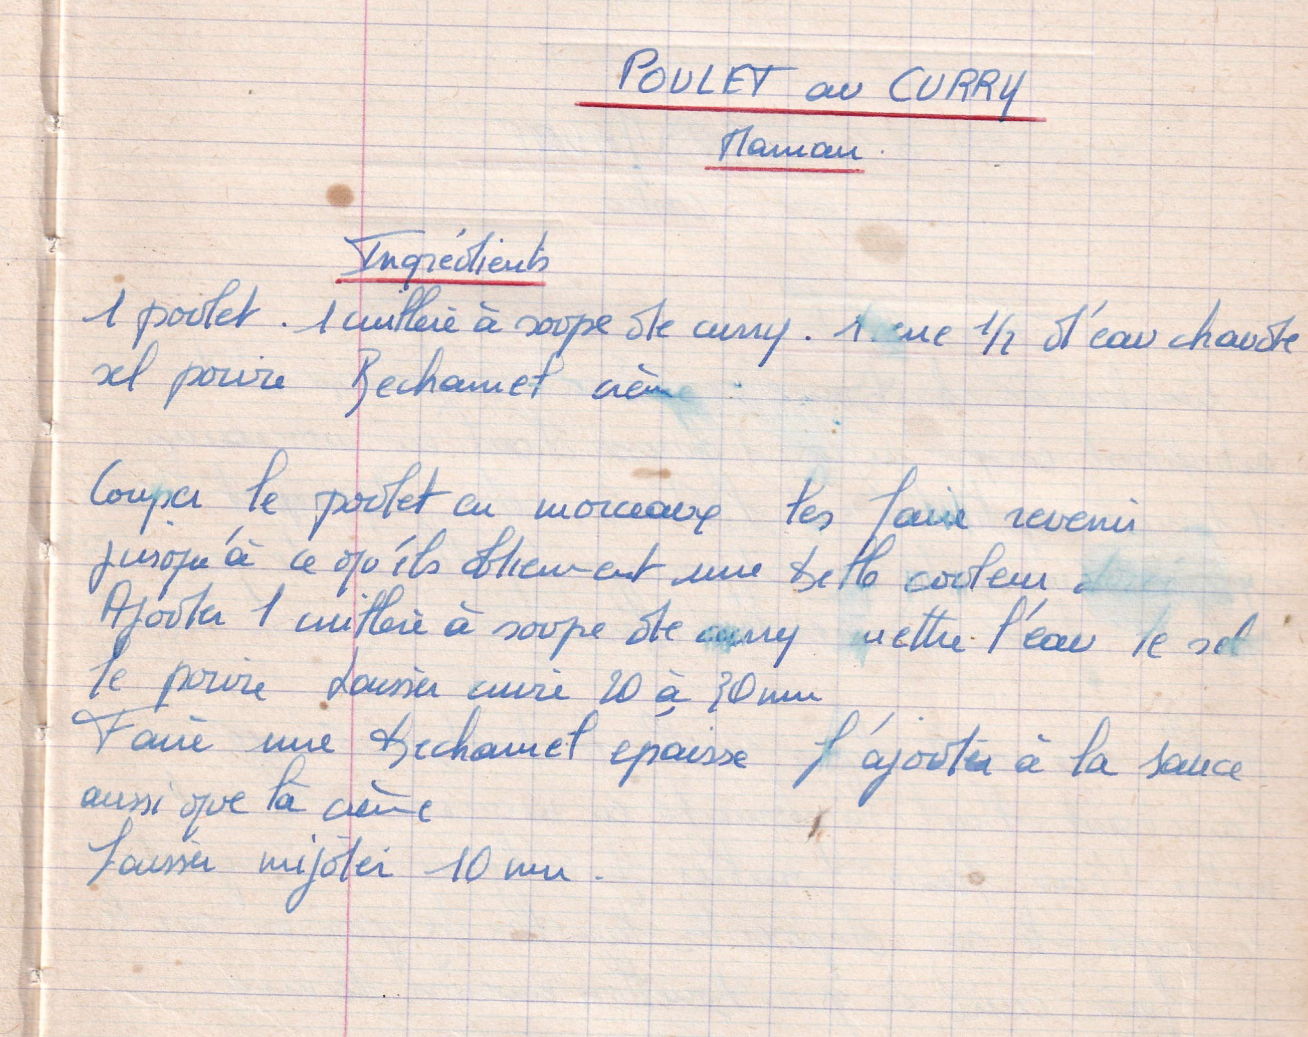 POULET au CURRY
Maman.
Ingrédients
1 poulet . 1 cuillère à soupe de curry . 1 1/2 d'eau chaude
sel poivre Bechamel crème
Couper le poulet en morceaux les faire revenir
jusqu'à ce qu'ils obtiennent une belle couleur
Ajouter 1 cuillère à soupe de curry mettre l'eau le sel
le poivre Laisser cuire 20 à 30 mn
Faire une Bechamel epaisse l'ajouter à la sauce
aussi que la crème
Laisser mijoter 10 mn.